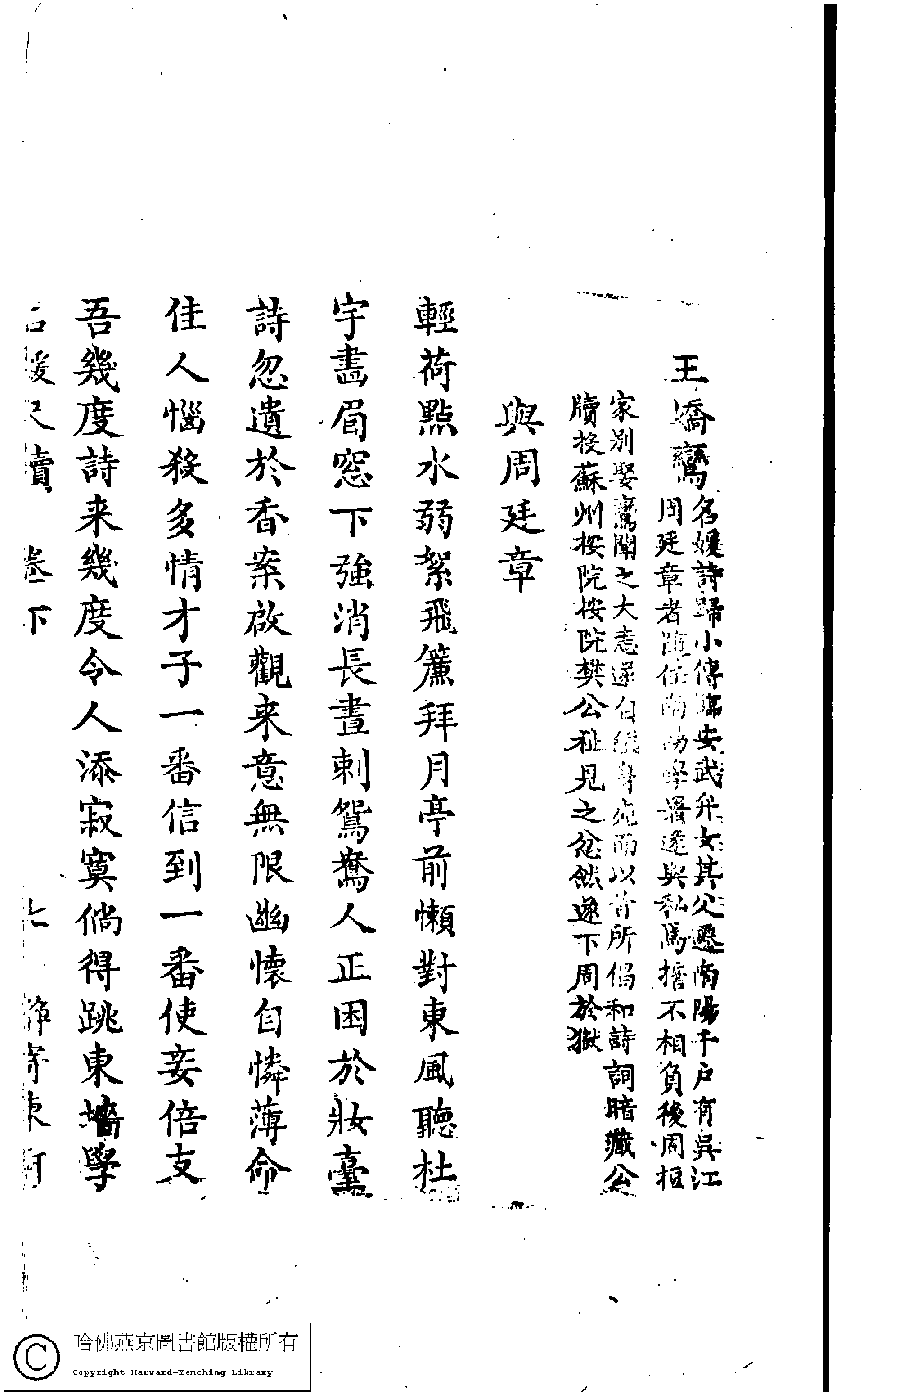 王嬌鸞
名媛詩歸小傳臨安武弁女其父遷南陽千戶有吳江
周廷章者隨任南陽學署遂與私焉擔不相負後周恒
家別娶鸞聞之大恚遂自縊身死而以昔所倡和詩詞暗藏公
牘投蘇州按院按院樊公祉見之忿然遂下周於獄
與周廷章
輕荷點水弱絮飛簾拜月亭前懶對東風聽杜
宇畵眉窓下強消長晝刺鴛鴦人正困於妝臺
詩忽遺於香案啟觀来意無限幽懷自憐薄命
佳人惱殺多情才子一番信到一番使妾倍支
吾幾度詩来幾度令人添寂寞倘得跳東墻學
媛尺牘 卷下
七 靜寄東軒
哈佛燕京圖書館版權所有
Copyright Harvard-Yenching Library